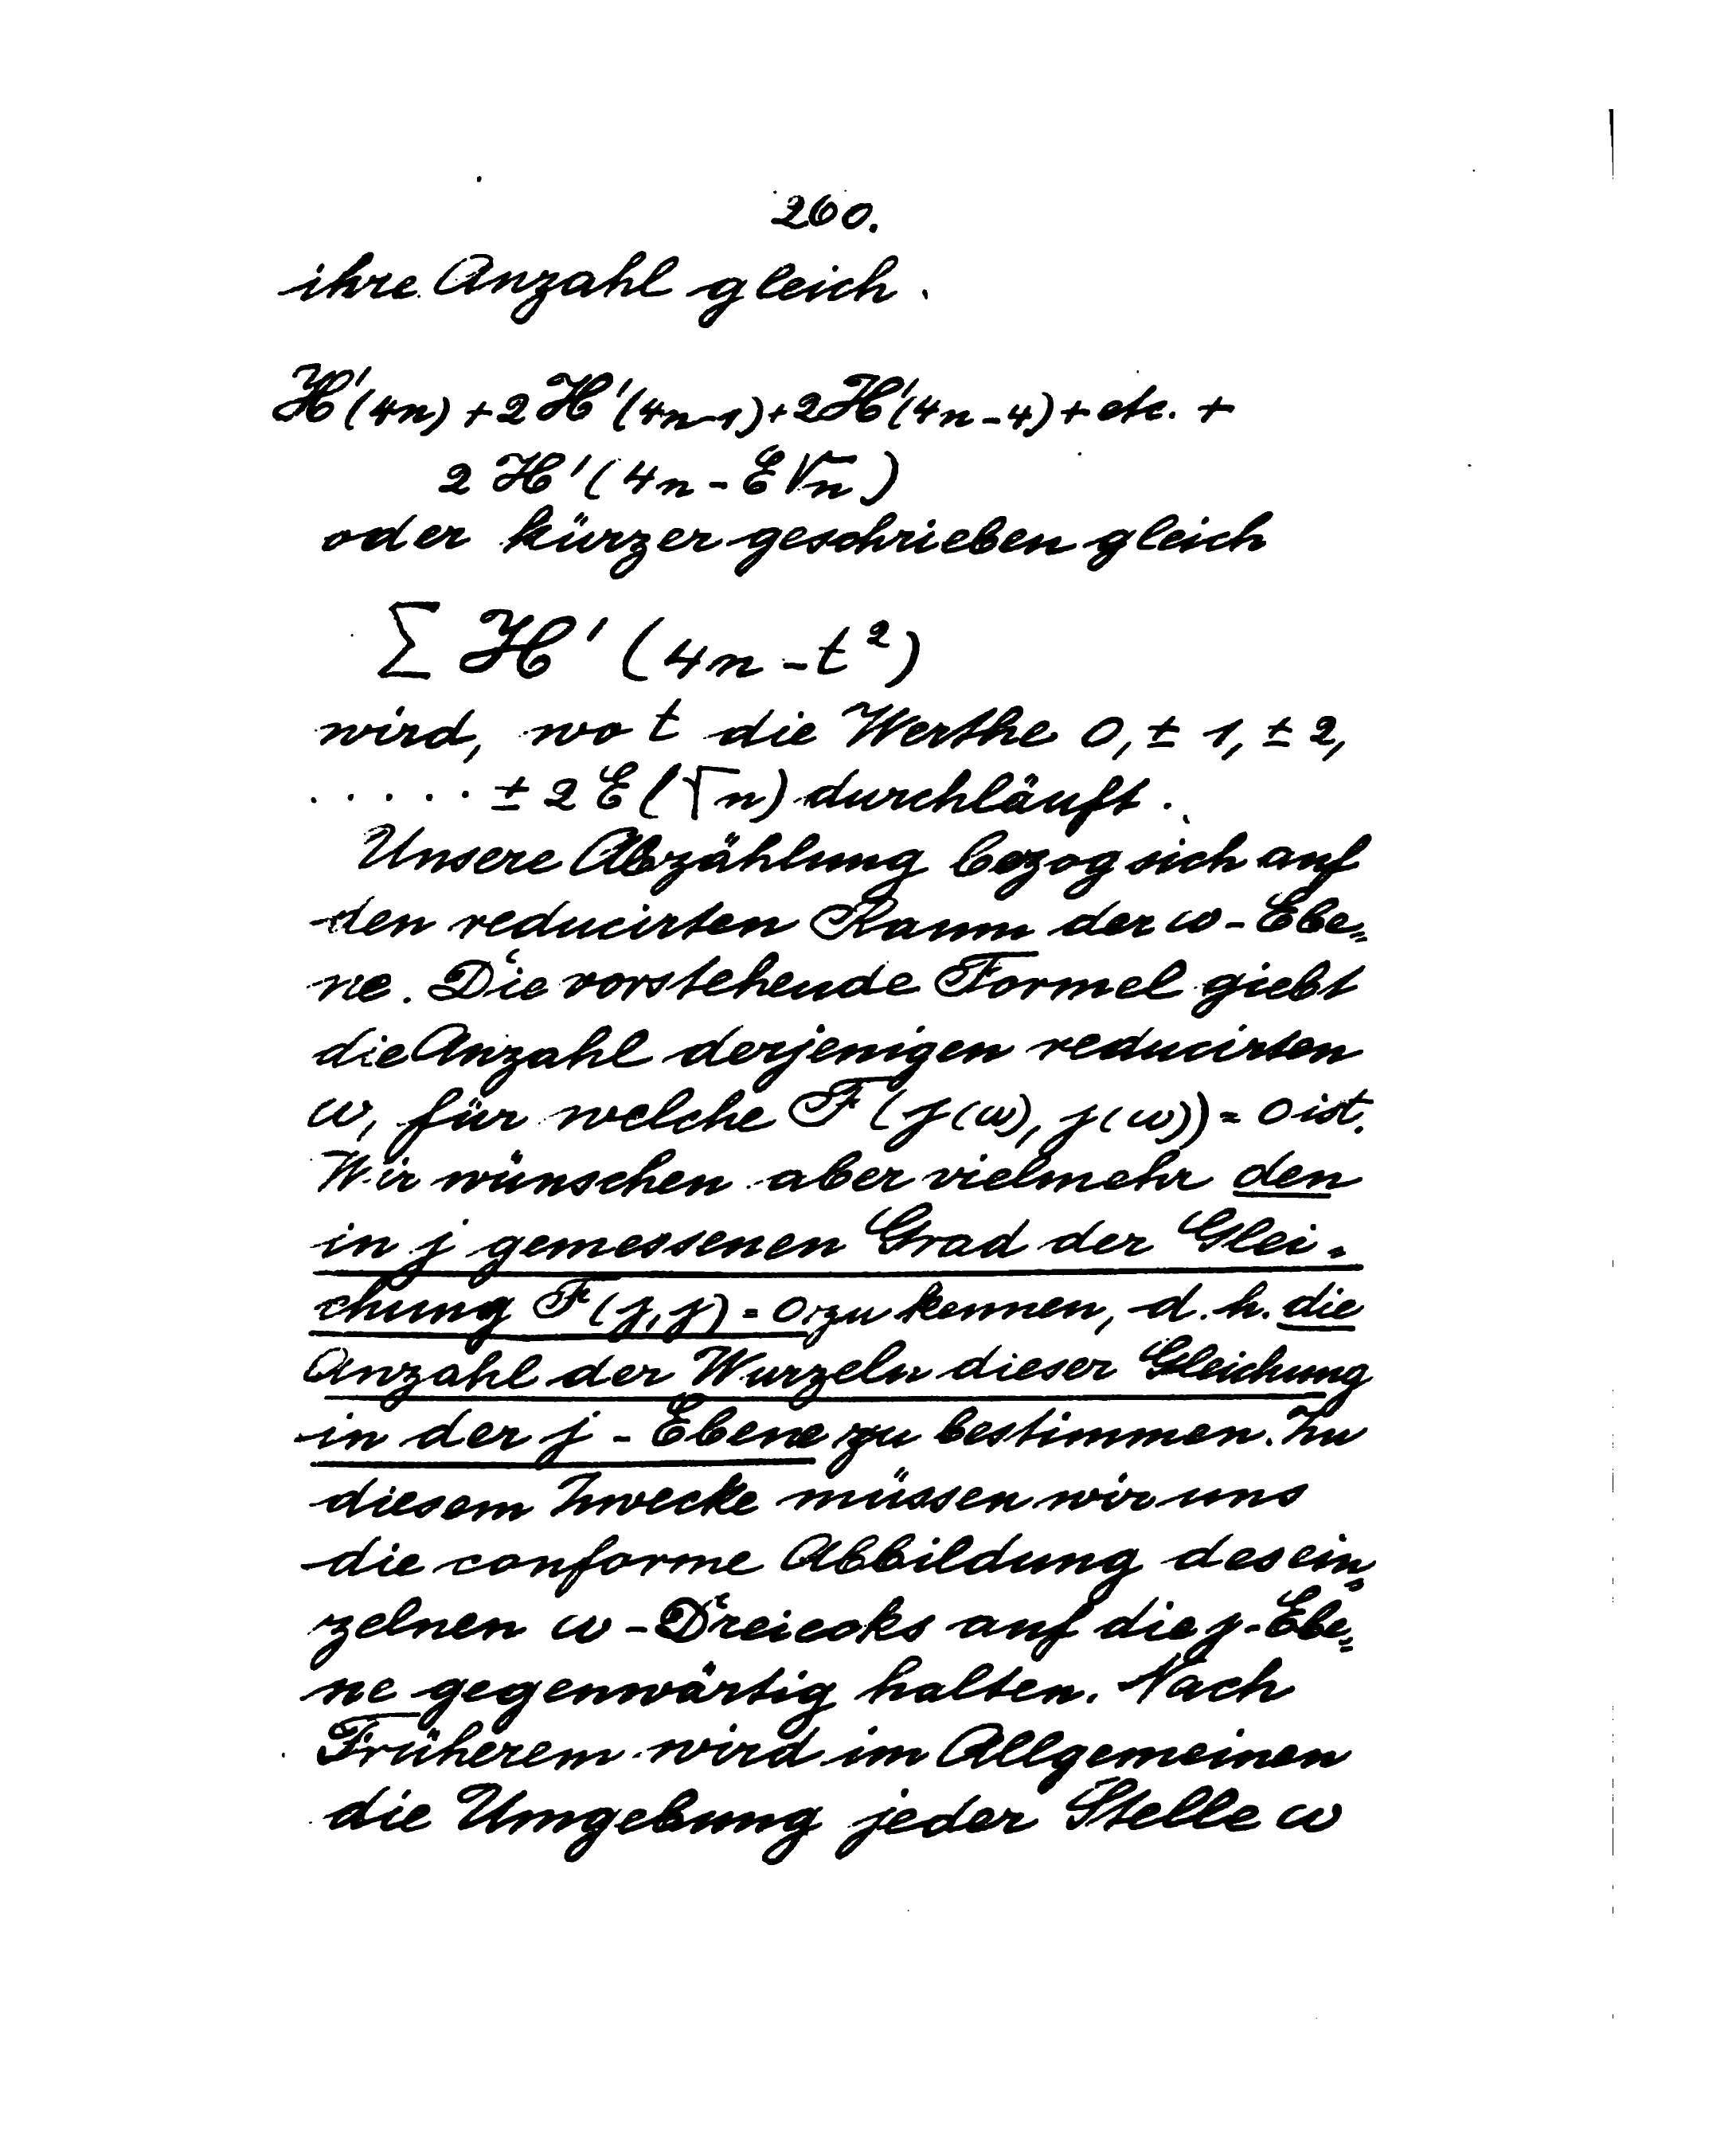 260.
ihre Anzahl gleich.
H'(4n) + 2 H'(4n-1) + 2 H'(4n-4) + etc. +
2 H'(4n - E√n)
oder kürzer geschrieben gleich
∑ H' (4n - t²)
wird, wo t die Werthe 0, ± 1, ± 2,
. . . . . ± 2 E(√n) durchläuft.
Unsere Abzählung bezog sich auf
den reducirten Raum der ω-Ebe=
ne. Die vorstehende Formel giebt
die Anzahl derjenigen reducirten
ω, für welche F(j(ω), j(ω)) = 0 ist.
Wir wünschen aber vielmehr den
in j gemessenen Grad der Glei=
chung F(j, j) = 0 zu kennen, d. h. die
Anzahl der Wurzeln dieser Gleichung
in der j-Ebene zu bestimmen. Zu
diesem Zwecke müssen wir uns
die conforme Abbildung des ein=
zelnen ω-Dreiecks auf die j-Ebe=
ne gegenwärtig halten. Nach
Früherem wird im Allgemeinen
die Umgebung jeder Stelle ω